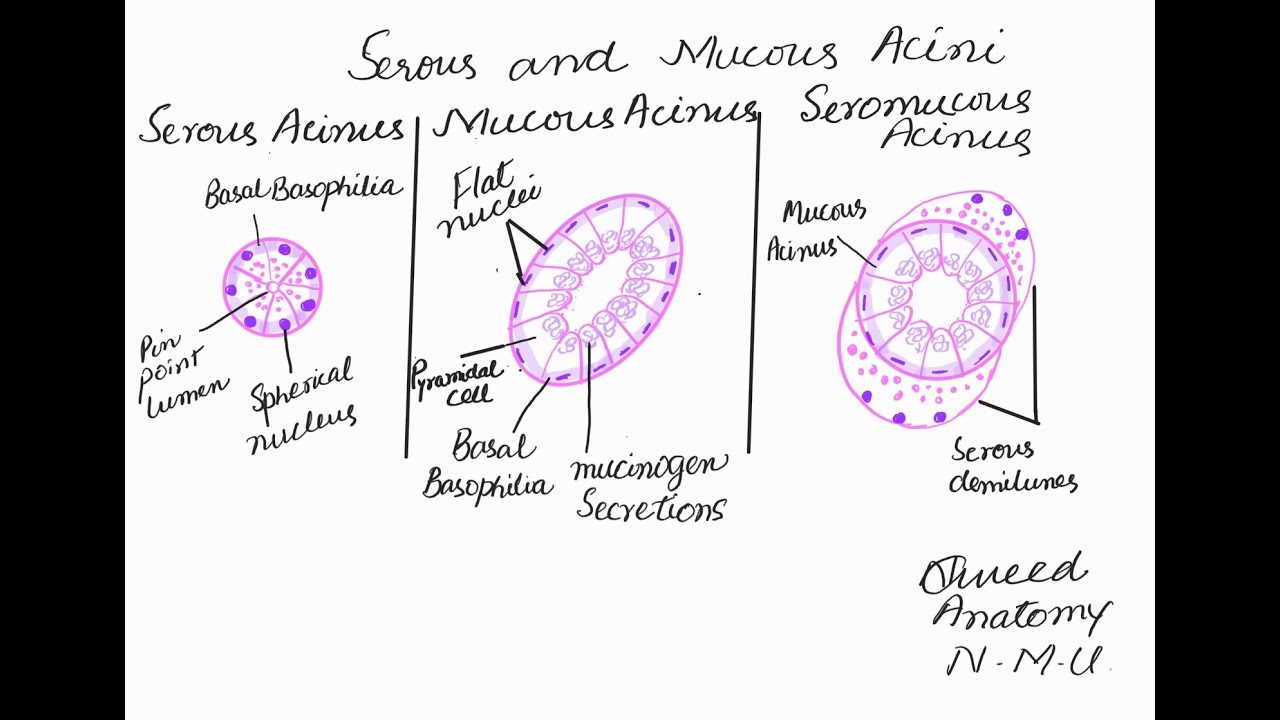 Serous and Mucous Acini
Serous Acinus
Basal Basophilia
Pin
point
lumen
Spherical
nucleus
Mucous Acinus
Flat
nuclei
Pyramidal
cell
Basal
Basophilia
mucinogen
Secretions
Seromucous
Acinus
Mucous
Acinus
Serous
demilunes
Anatomy
N-M-U.